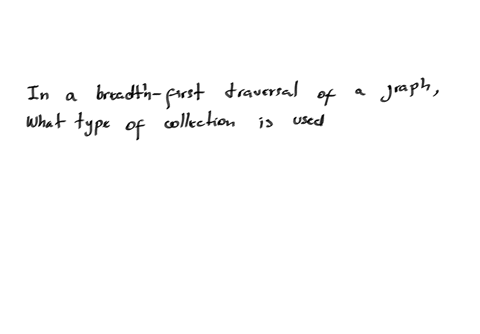 In a breadth-first traversal of a graph,
What type of collection is used